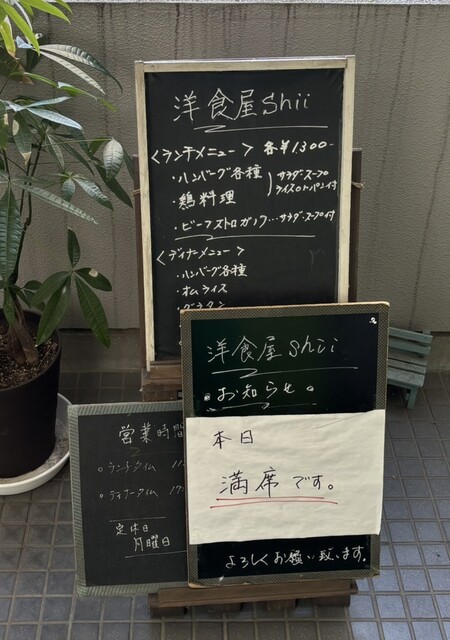 洋食屋Shii
<ランチメニュー> 各¥1300-
・ハンバーグ各種
・鶏料理
サラダ・スープ
ライスorパン付
・ビーフストロガノフ…サラダ・スープ付
<ディナーメニュー>
・ハンバーグ各種
・オムライス
・グラタン
洋食屋Shii
お知らせ
本日
満席です。
よろしくお願い致します。
営業時間
○ランチタイム 11
○ディナータイム 17
定休日
月曜日